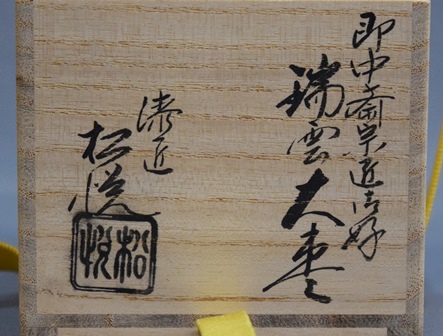 即中斎宗匠御好
瑞雲大棗
漆匠
松悦
松悦